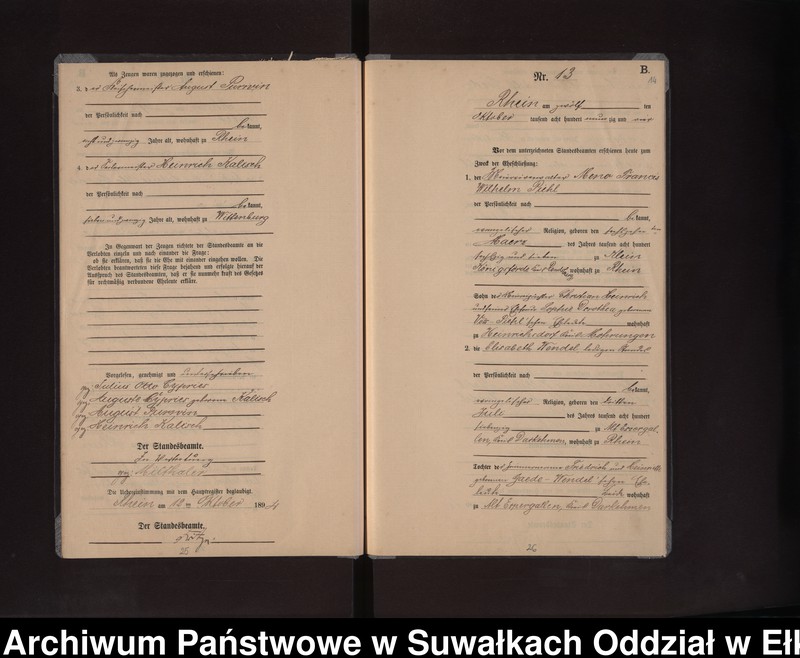 Als Zeugen waren zugezogen und erschienen:
3. der Fleischermeister August Purwin
der Persönlichkeit nach
bekannt,
acht und zwanzig Jahre alt, wohnhaft zu Rhein
4. der Heinrich Kalisch
der Persönlichkeit nach
bekannt,
sieben und zwanzig Jahre alt, wohnhaft zu Wittenburg
In Gegenwart der Zeugen richtete der Standesbeamte an die
Verlobten einzeln und nach einander die Frage:
ob sie erklären, daß sie die Ehe mit einander eingehen wollen. Die
Verlobten beantworteten diese Frage bejahend und erfolgte hierauf der
Ausspruch des Standesbeamten, daß er sie nunmehr kraft des Gesetzes
für rechtmäßig verbundene Eheleute erkläre.
Vorgelesen, genehmigt und unterschrieben
gez. Julius Otto Cyprier
gez. Auguste Cyprier geborene Kalisch
gez. August Purwin
gez. Heinrich Kalisch
Der Standesbeamte.
In Vertretung
gez.
Die Uebereinstimmung mit dem Hauptregister beglaubigt.
Rhein am 12ten Oktober 1894
Der Standesbeamte.
25
B.
Nr. 13
14
Rhein am zwölften
Oktober tausend acht hundert neunzig und vier
Vor dem unterzeichneten Standesbeamten erschienen heute zum
Zweck der Eheschließung:
1. der Meno Francis
Wilhelm Piehl
der Persönlichkeit nach
bekannt,
evangelischer Religion, geboren den sechszehnten
Maerz des Jahres tausend acht hundert
sechszig und sieben zu Klein
Königsförde wohnhaft zu Rhein
Sohn des Christian Heinrich
und Sophie Dorothea geborene
Voss-Piehl'schen Eheleute wohnhaft
zu Heinrichsdorf Kreis Mohrungen
2. die Elisabeth Wendel ledigen Standes
der Persönlichkeit nach
bekannt,
evangelischer Religion, geboren den dritten
Juli des Jahres tausend acht hundert
siebenzig zu Alt Emergal-
len, Kreis Darkehmen, wohnhaft zu Rhein
Tochter der Friedrich und Heinriette
geborenen Gaede-Wendel'schen Ehe-
leute Beide wohnhaft
zu Alt Emergallen, Kreis Darkehmen
26
Archiwum Państwowe w Suwałkach Oddział w Ełk